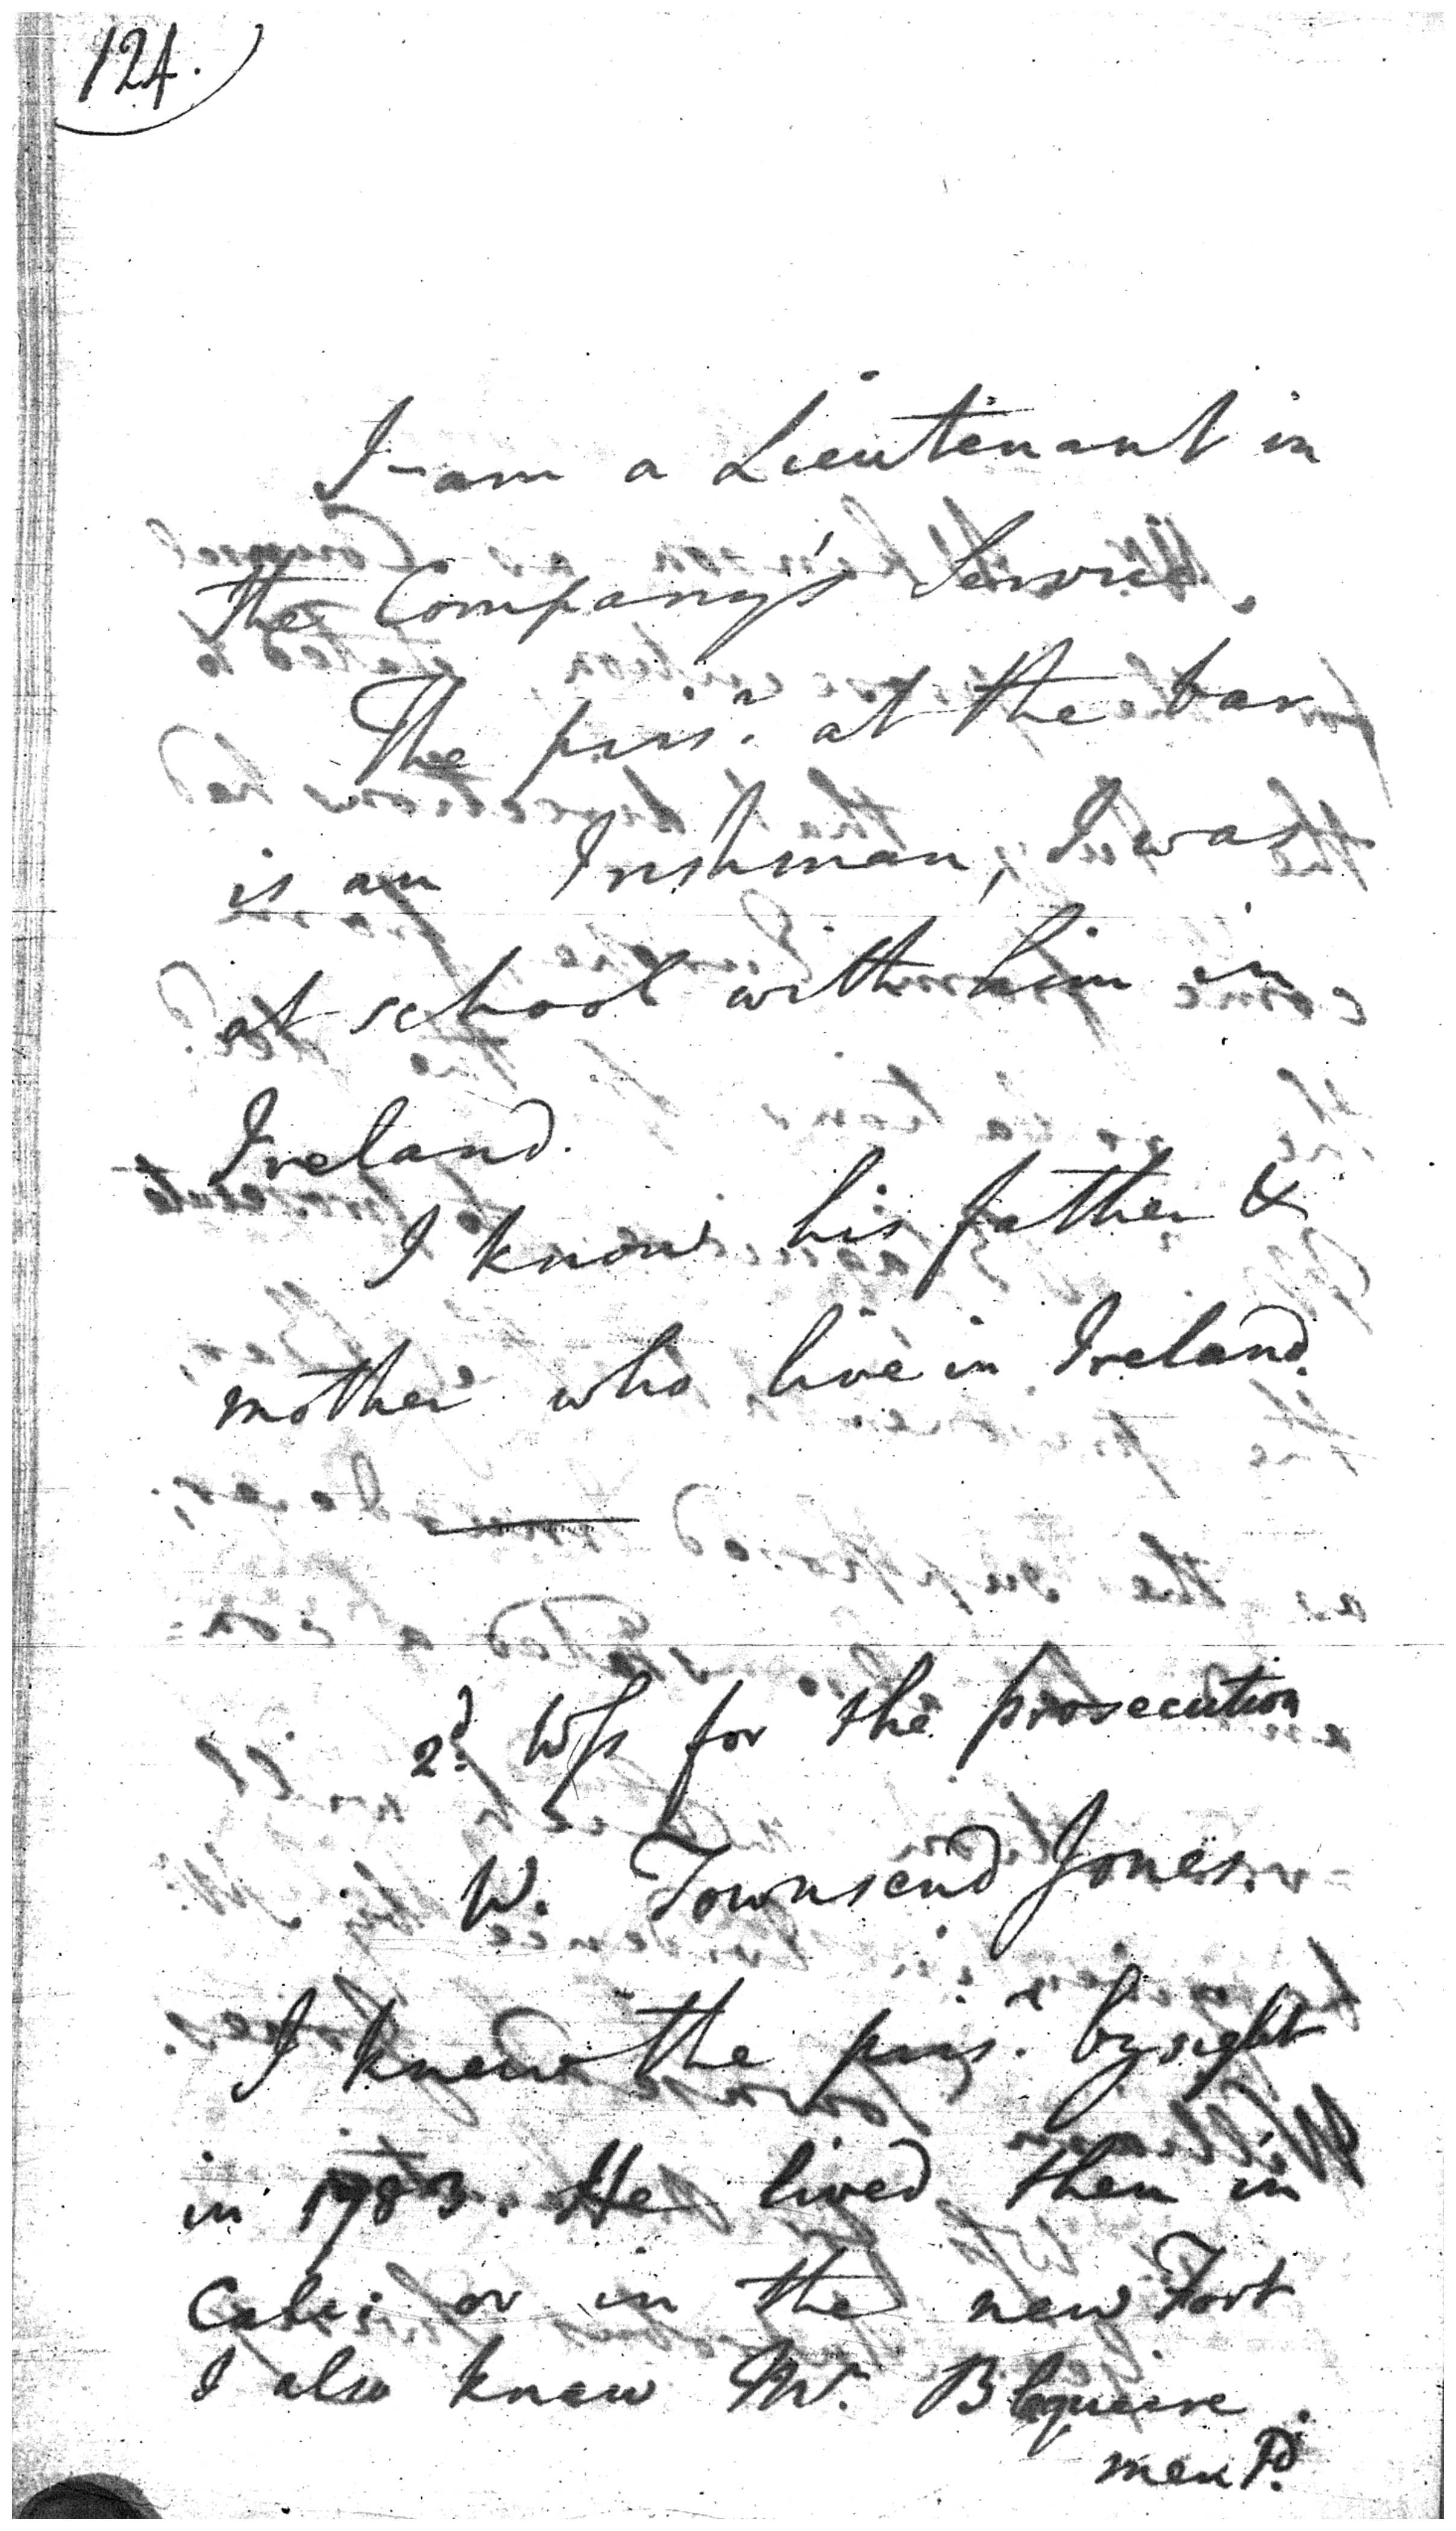 124.
I am a Lieutenant in
the Company's Service.
The pris.r at the bar
is an Irishman, I was
at school with him in
Ireland.
I know his father &
mother who live in Ireland.
2.d Wss for the prosecution
W. Townsend Jones.
I knew the pris.r by sight
in 1783. He lived then in
Calc: or in the new Fort
I also knew Mr. Blaquiere
men.d